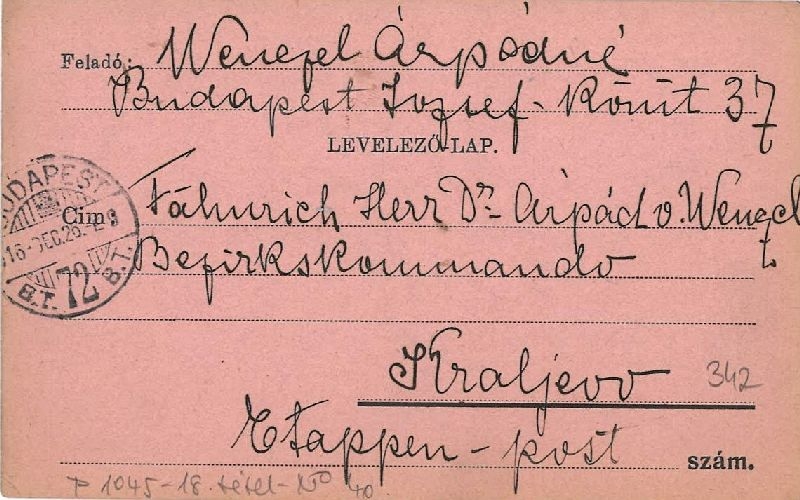 Feladó: Wenczel Árpádné
Budapest József-Körút 37
LEVELEZŐ-LAP.
BUDAPEST
Cim: Fähnrich Herr Dr. Árpád v. Wenczel
916-DEC.29.
Bezirkskommando
B.T. 72 B.T.
Kraljevo 342
Etappen-post szám.
P 1045-18. tétel-
40